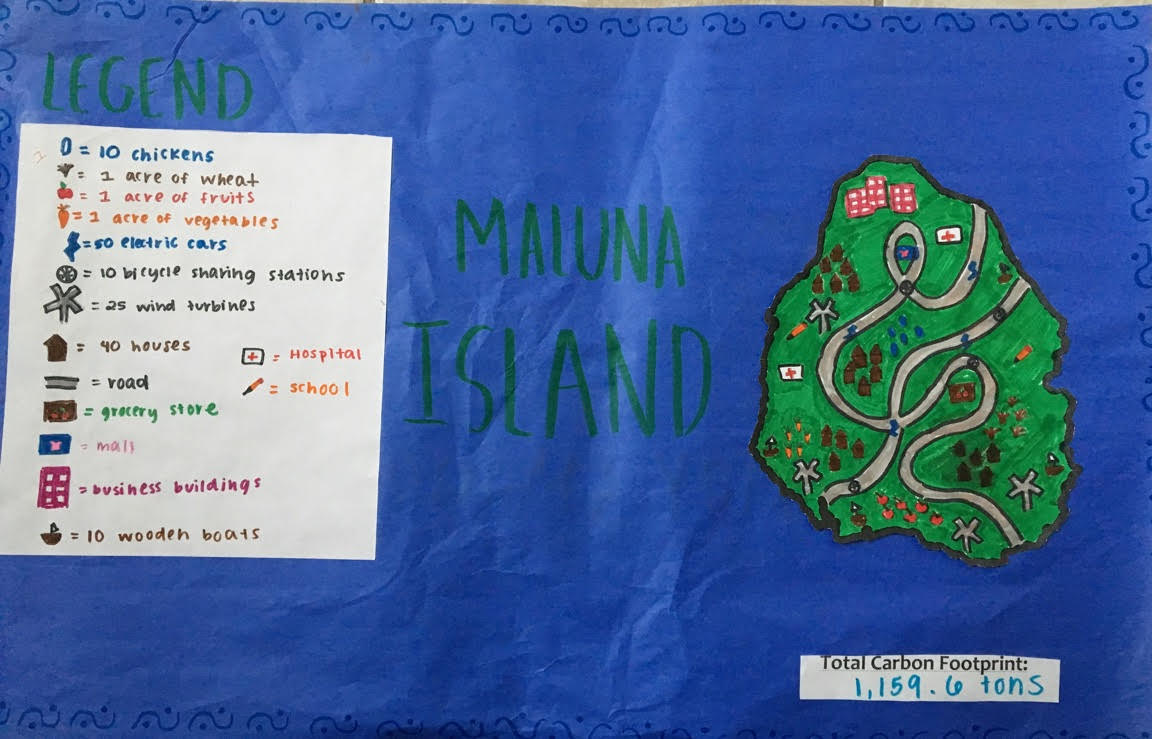 LEGEND
= 10 chickens
= 1 acre of wheat
= 1 acre of fruits
= 1 acre of vegetables
= 50 electric cars
= 10 bicycle sharing stations
= 25 wind turbines
= 40 houses
= Hospital
= road
= school
= grocery store
= mall
= business buildings
= 10 wooden boats
MALUNA
ISLAND
Total Carbon Footprint:
1,159.6 tons